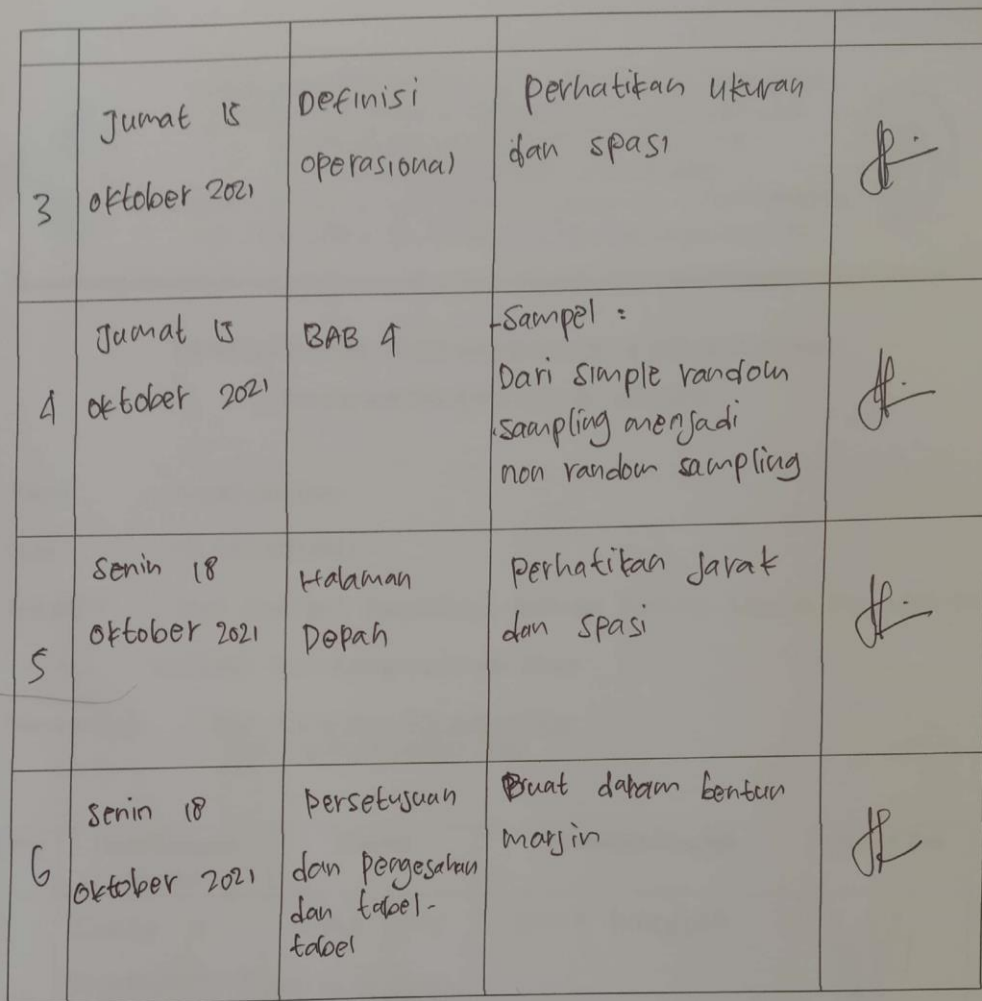 3
Jumat 15
oktober 2021
Definisi
operasional
perhatikan ukuran
dan spasi
4
Jumat 15
oktober 2021
BAB 4
-Sampel :
Dari simple random
sampling menjadi
non random sampling
5
Senin 18
oktober 2021
Halaman
Depan
perhatikan Jarak
dan spasi
6
senin 18
oktober 2021
persetujuan
dan pengesahan
dan tabel-
tabel
Buat dalam bentuk
marjin